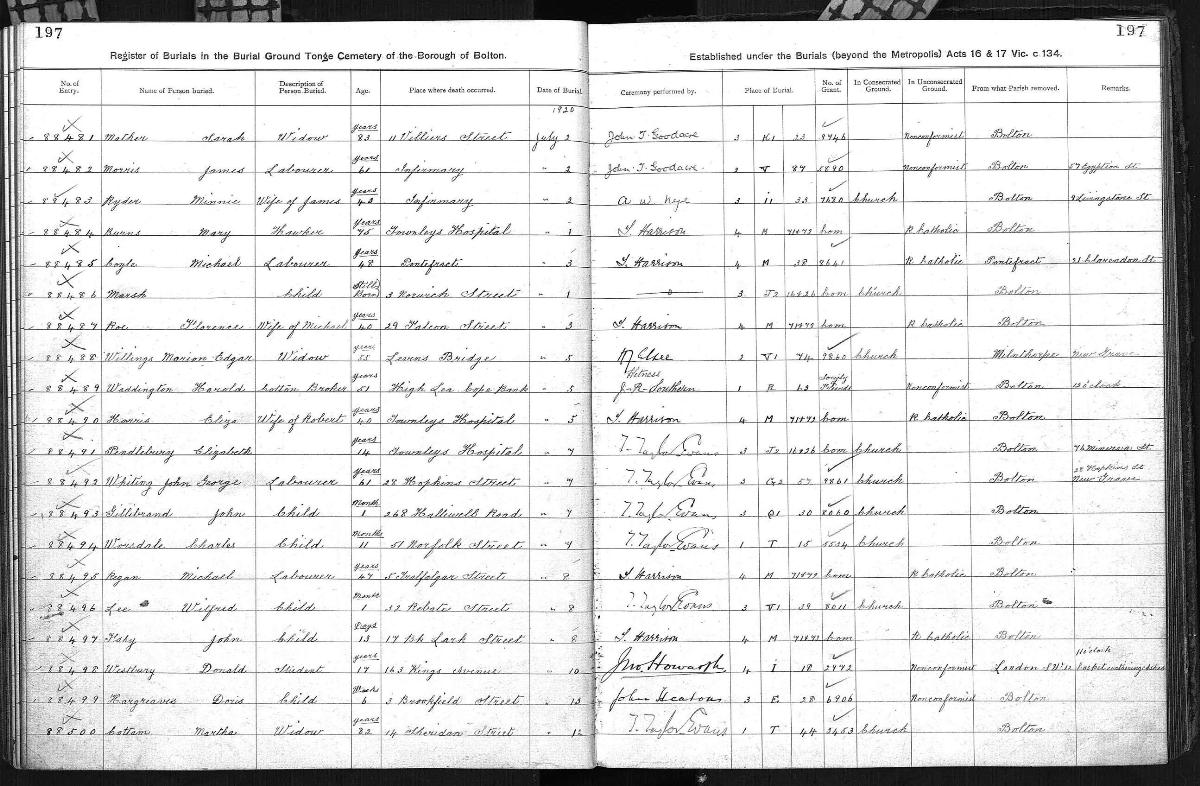 197
197
Register of Burials in the Burial Ground Tonge Cemetery of the Borough of Bolton.
Established under the Burials (beyond the Metropolis) Acts 16 & 17 Vic. c 134.
No. of Entry. Name of Person buried. Description of Person Buried. Age. Place where death occurred. Date of Burial Ceremony performed by. Place of Burial. No. of Grant. In Consecrated Ground. In Unconsecrated Ground. From what Parish removed. Remarks.
1920
88481 Mather Sarah Widow years 83 11 Villiers Street July 2 John T. Goodacre 3 K1 23 8746 Nonconformist Bolton
88482 Morris James Labourer years 61 Infirmary " 2 John T. Goodacre 2 V 87 5890 Nonconformist Bolton 57 Egyptian St.
88483 Ryder Minnie Wife of James years 40 Infirmary " 2 A. W. Nye 3 I1 33 7680 Church Bolton 9 Livingstone St
88484 Burns Mary Hawker years 75 Townleys Hospital " 1 T. Harrison 4 M 71&72 Com R Catholic Bolton
88485 Coyle Michael Labourer years 48 Pontefract " 3 T. Harrison 4 M 38 8641 R Catholic Pontefract 21 Clarendon St.
88486 Marsh Child Still Born 3 Norwich Street " 1 3 J2 16&26 Com Church Bolton
88487 Roe Florence Wife of Michael years 40 29 Falcon Street " 3 T. Harrison 4 M 71&72 Com R Catholic Bolton
88488 Willings Marion Edgar Widow years 55 Levens Bridge " 5 2 V1 74 9860 Church Milnthorpe New Grave
88489 Waddington Harold Cotton Broker years 51 High Lea Cope Bank " 5 Witness J. R. Southern 1 R 63 Society Friends Nonconformist Bolton
88490 Harris Eliza Wife of Robert years 40 Townleys Hospital " 5 T. Harrison 4 M 71&72 Com R Catholic Bolton
88491 Pendlebury Elizabeth years 14 Townleys Hospital " 7 T. Taylor Evans 3 J2 16&26 Com Church Bolton 76 Minerva St.
88492 Whiting John George Labourer years 61 28 Hopkins Street " 7 T. Taylor Evans 3 G2 57 9861 Church Bolton 28 Hopkins St New Grave
88493 Gillibrand John Child Month 1 268 Halliwell Road " 7 T. Taylor Evans 3 Q1 30 8060 Church Bolton
88494 Worsdale Charles Child Months 11 51 Norfolk Street " 7 T. Taylor Evans 1 T 15 5534 Church Bolton
88495 Regan Michael Labourer years 47 5 Trafalgar Street " 8 T. Harrison 4 M 71&72 Com R Catholic Bolton
88496 Lee Wilfred Child Month 1 32 Rebate Street " 8 T. Taylor Evans 3 V1 39 8011 Church Bolton
88497 John Child Days 13 17 Bk Lark Street " 8 T. Harrison 4 M 71&72 Com R Catholic Bolton
88498 Westbury Donald Student years 17 163 Kings Avenue " 10 Jno. Howarth 4 I 18 2772 Nonconformist London S.W. 12 11 o'clock
88499 Hargreaves Doris Child Weeks 6 3 Brookfield Street " 13 John Heaton 3 E 28 6906 Nonconformist Bolton
88500 Cottam Martha Widow years 82 14 Sheridan Street " 12 T. Taylor Evans 1 T 44 2453 Church Bolton